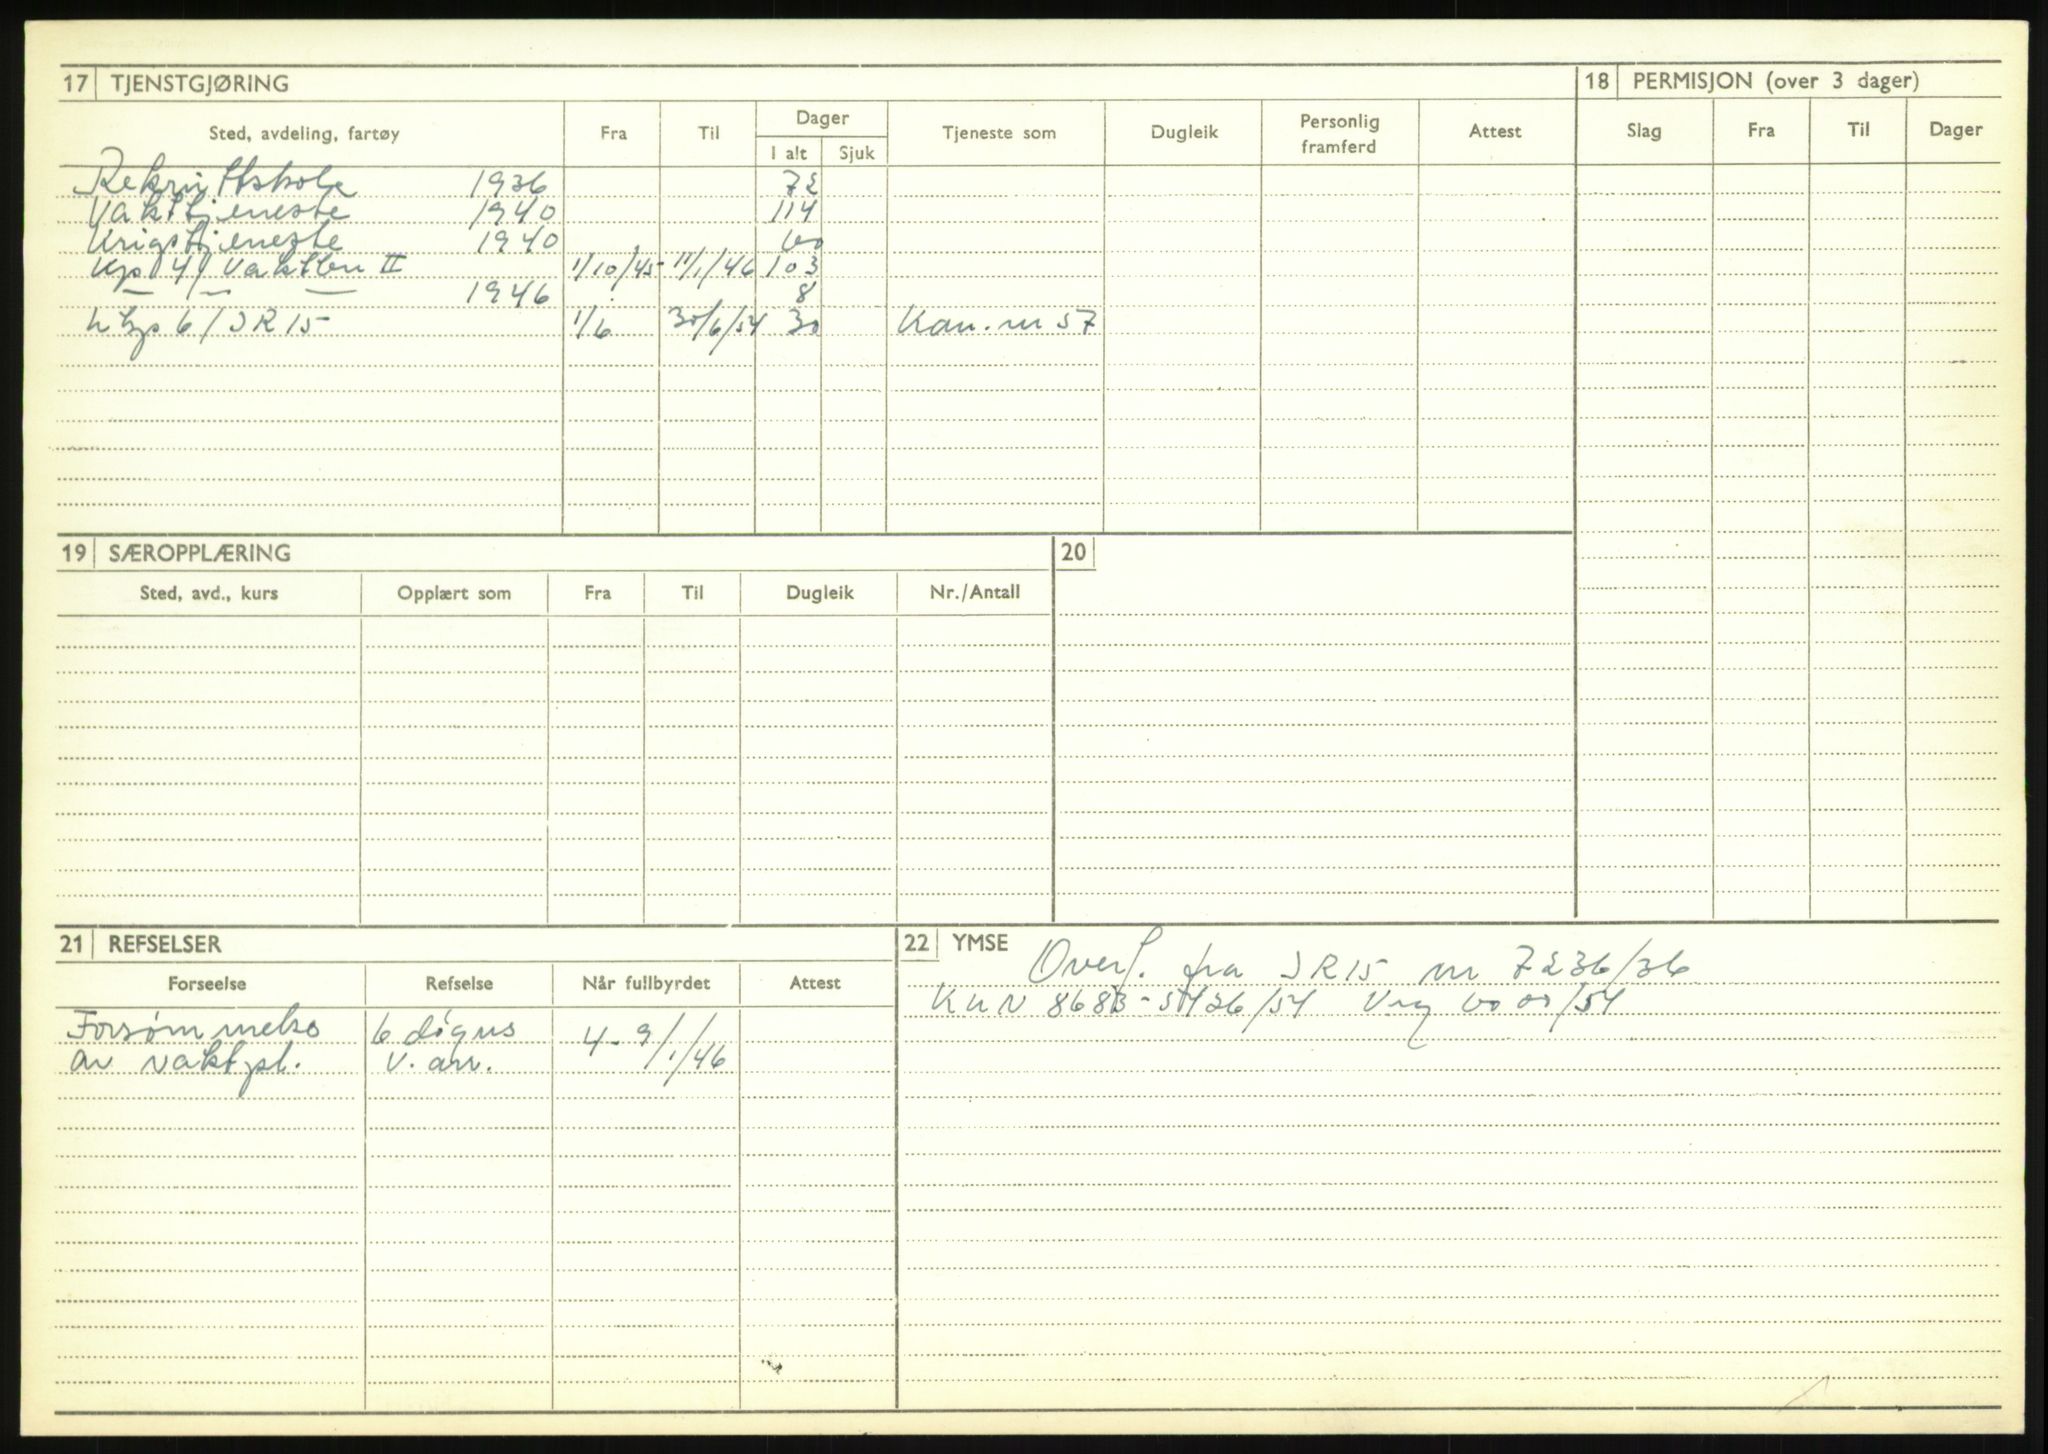 17 TJENSTGJØRING
18 PERMISJON (over 3 dager)
Sted, avdeling, fartøy Fra Til Dager I alt Sjuk Tjeneste som Dugleik Personlig framferd Attest
Slag Fra Til Dager
Rekruttskole 1936 72
Vakttjeneste 1940 114
Krigstjeneste 1940 60
Kp 4/ Vaktbn II 1/10/45 11/1/46 103
— — — 1946 8
kp 6/IR 15 1/6 30/6/54 30 Kan. m 57
19 SÆROPPLÆRING
20
Sted, avd., kurs Opplært som Fra Til Dugleik Nr./Antall
21 REFSELSER
Forseelse Refselse Når fullbyrdet Attest
Forsømmelse 6 døgns 4-9/1/46
av vaktpl. v. arr.
22 YMSE Overf. fra IR 15 nr 7236/36